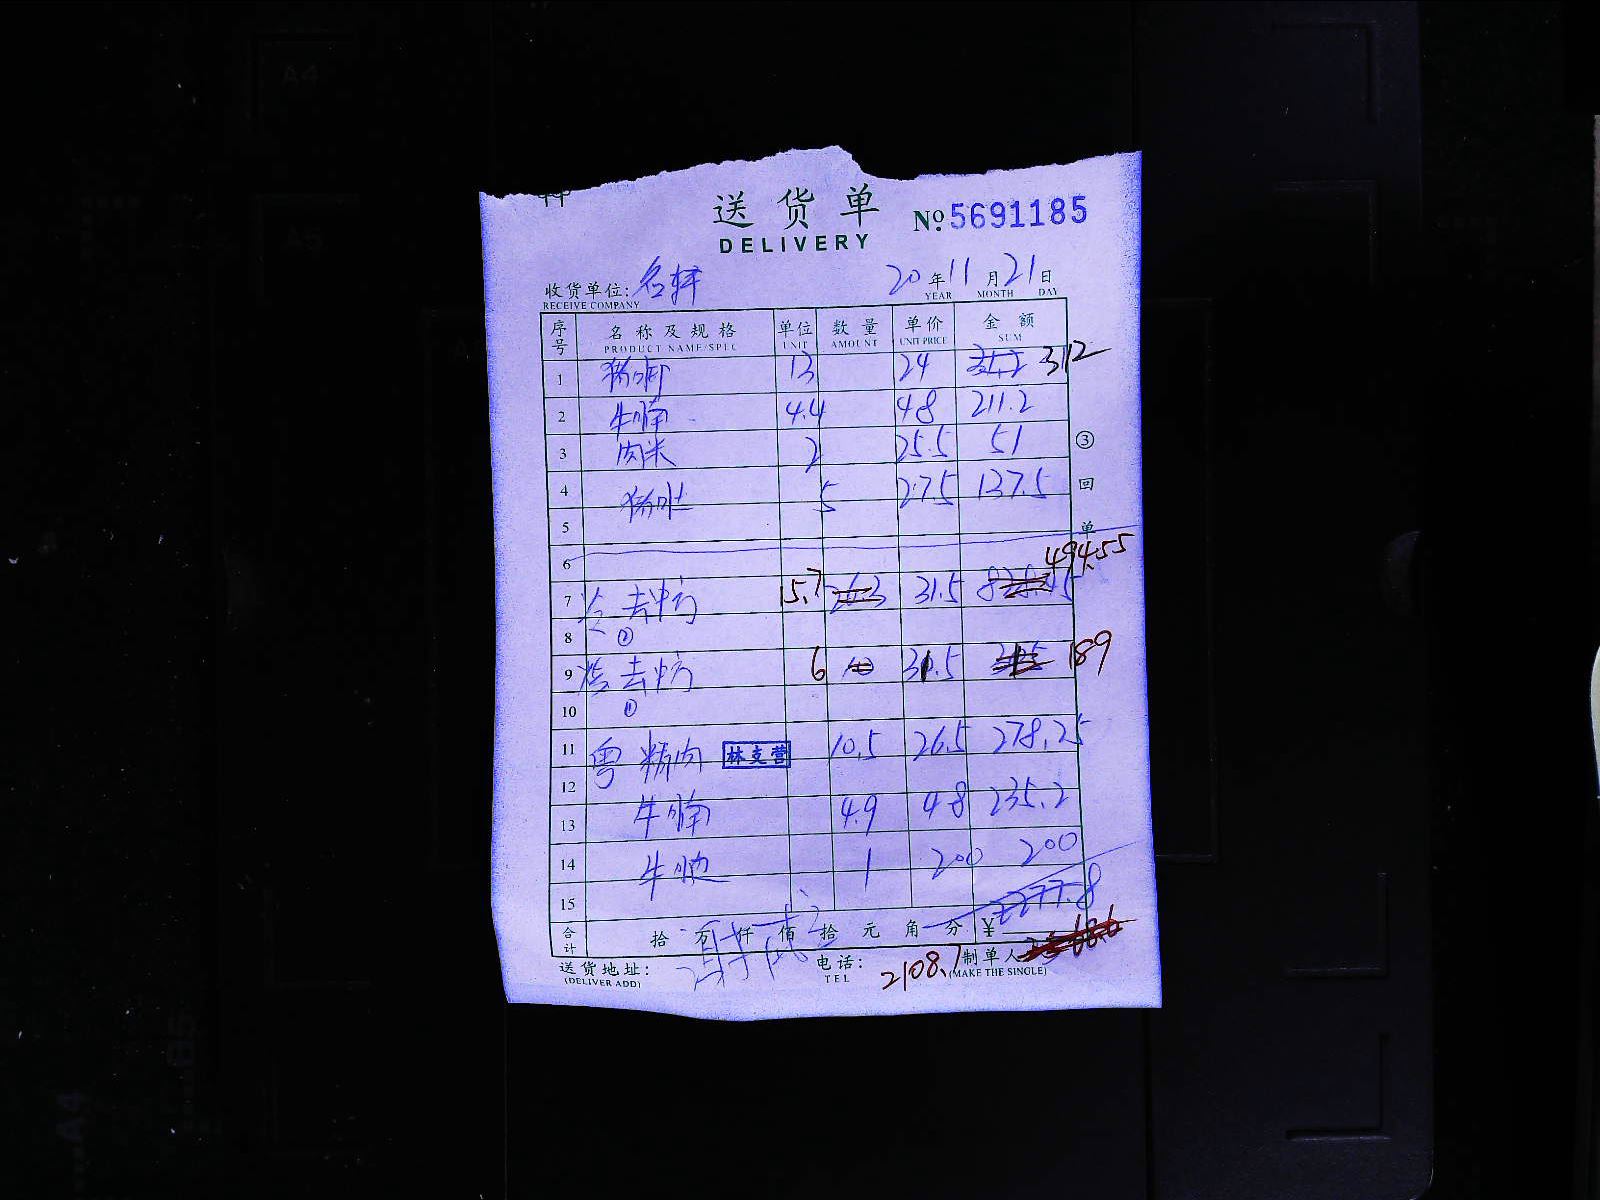 送货单
DELIVERY
No.5691185
收货单位: 名轩 20年11月21日
RECEIVE COMPANY YEAR MONTH DAY
序号 名称及规格 单位 数量 单价 金额
PRODUCT NAME/SPEC UNIT AMOUNT UNIT PRICE SUM
1 13 24 312
2 牛腩 4.4 48 211.2
3 肉米 2 25.5 51 ③
4 猪肚 5 27.5 137.5 回
5
单
6 494.55
7 冷 去 15.7 31.5
8 ②
9 去 6 31.5 189
10 ①
11 粤 精肉 林支营 10.5 26.5 278.25
12
13 牛腩 4.9 48 235.2
14 牛 1 200 200
15 2277.8
合计 拾 万 仟 佰 拾 元 角 分 ¥
送货地址: 电话: 2108.7 制单人
(DELIVER ADD) TEL (MAKE THE SINGLE)
A4
A5
A4